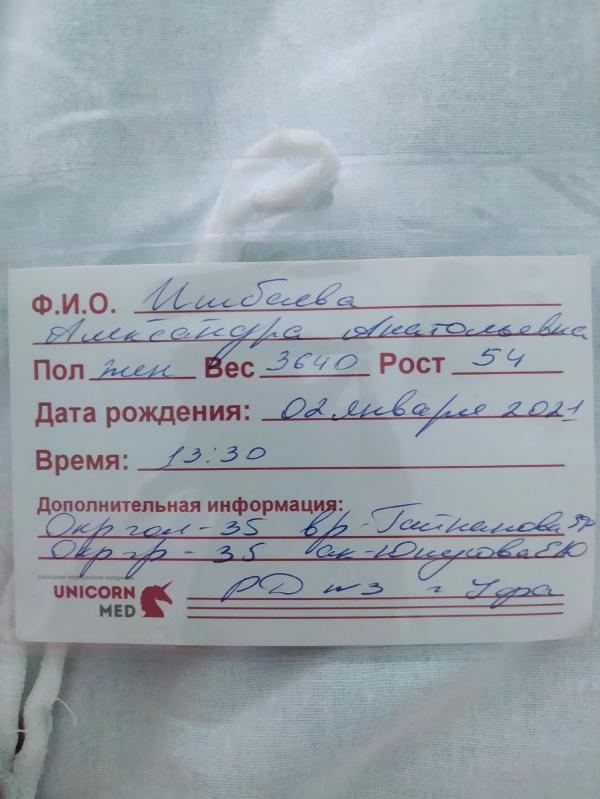 Ф.И.О. Ишбаева
Александра Анатольевна
Пол жен Вес 3640 Рост 54
Дата рождения: 02 января 2021
Время: 13:30
Дополнительная информация:
Окр гол - 35 вр - Гайнанова
Окр гр - 35 ак - Юнусова
расходные медицинские материалы
UNICORN
MED
РД №3 г Уфа